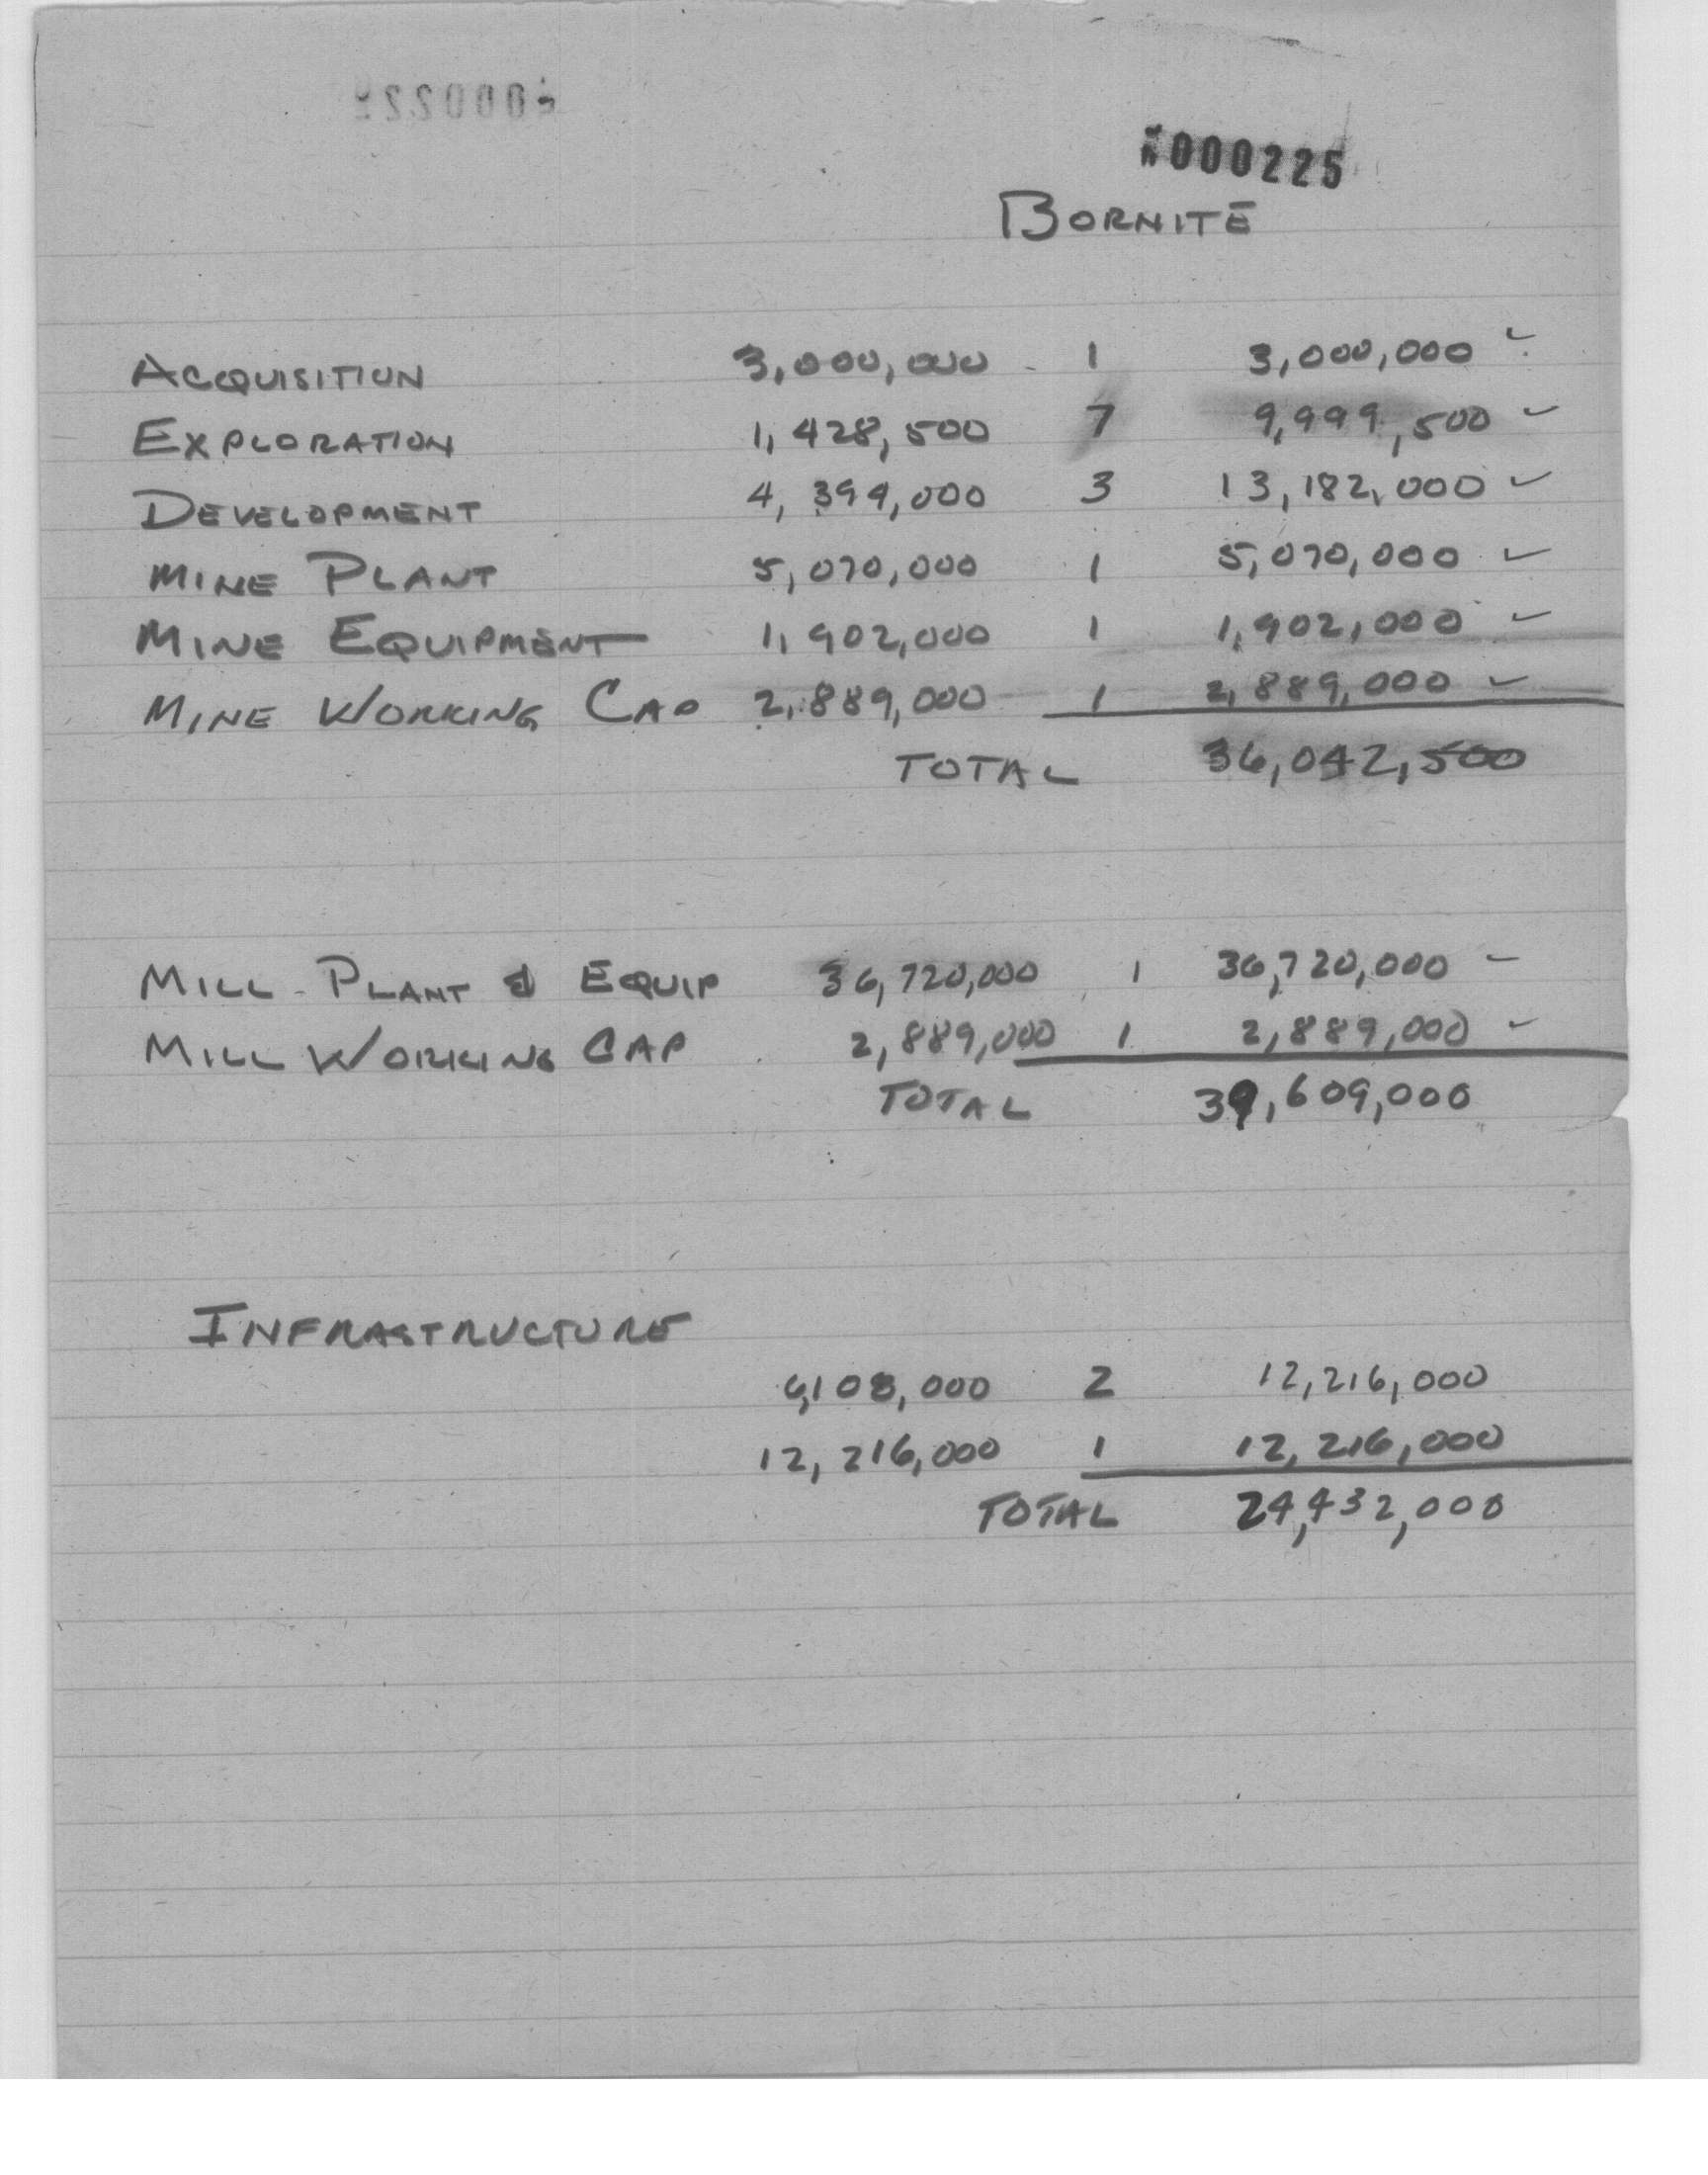 000225
BORNITE
ACQUISITION 3,000,000 1 3,000,000 ✓
EXPLORATION 1,428,500 7 9,999,500 ✓
DEVELOPMENT 4,394,000 3 13,182,000 ✓
MINE PLANT 5,070,000 1 5,070,000 ✓
MINE EQUIPMENT 1,902,000 1 1,902,000 ✓
MINE WORKING CAP 2,889,000 1 2,889,000 ✓
TOTAL 36,042,500
MILL PLANT & EQUIP 36,720,000 1 36,720,000 ✓
MILL WORKING CAP 2,889,000 1 2,889,000 ✓
TOTAL 39,609,000
INFRASTRUCTURE
6,108,000 2 12,216,000
12,216,000 1 12,216,000
TOTAL 24,432,000